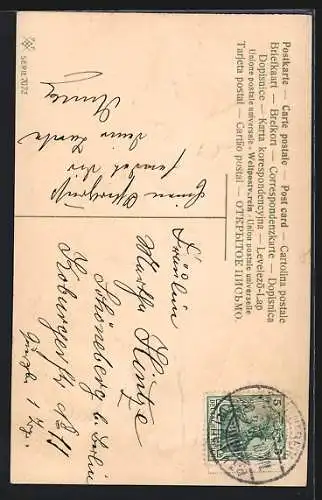 Postkarte — Carte postale — Post card — Cartolina postale
Briefkaart — Brefkort — Correspondenzkarte — Dopisnica
Dopisnice — Karta korespondencyjna — Levelező-Lap
Unione postale universale - Weltpostverein - Union postale universelle
Tarjeta postal — Cartão postal — ОТКРЫТОЕ ПИСЬМО.
SERIE 7072
sendet Dir
Deine Tante
Anna
Fräulein
Martha Hentze
Schöneberg b. Berlin
Koburgerstr. No 11
5 5